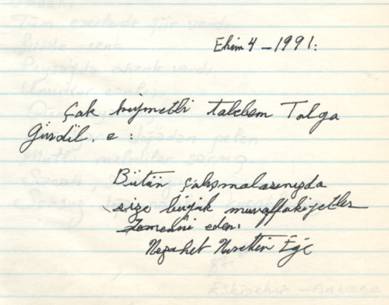 Ekim 4 - 1991:
Çok kıymetli talebem Tolga
Gürdil. e:
Bütün çalışmalarınızda
size büyük muvaffakiyetler
temenni eder.
Nezahet Nurettin Ege